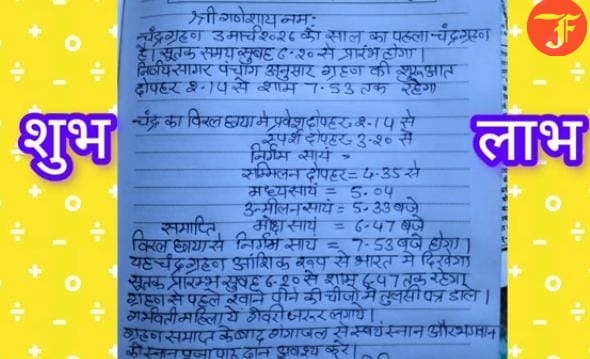 श्री गणेशाय नमः
चंद्रग्रहण 3 मार्च 2026 को साल का पहला चंद्रग्रहण
है। सूतक समय सुबह 6-20 से प्रारंभ होगा।
निर्णय सागर पंचांग अनुसार ग्रहण की शुरूआत
दोपहर 2-14 से शाम 7-53 तक रहेगा
चंद्र का विरल छाया मे प्रवेश दोपहर-2-14 से
स्पर्श दोपहर-3-20 से
निर्गम सायं =
सम्मिलन दोपहर = 4-35 से
मध्य सायं = 5.04
उन्मीलन सायं = 5.33 बजे
समाप्ति मोक्ष सायं = 6-47 बजे
विरल छाया से निर्गम सायं = 7-53 बजे होगा।
यह चंद्रग्रहण आंशिक रूप से भारत मे दिखेगा
सूतक प्रारम्भ सुबह 6-20 से शाम 6-47 तक रहेगा
ग्रहण से पहले खाने पीने की चीजो मे तुलसी पत्र डाले।
गर्भवती महिलाये गेवरो जरूर लगाये।
ग्रहण समाप्त के बाद गंगाजल से स्वयं स्नान और भगवान
को स्नान पूजा पाठ दान अवश्य करे।
शुभ
लाभ